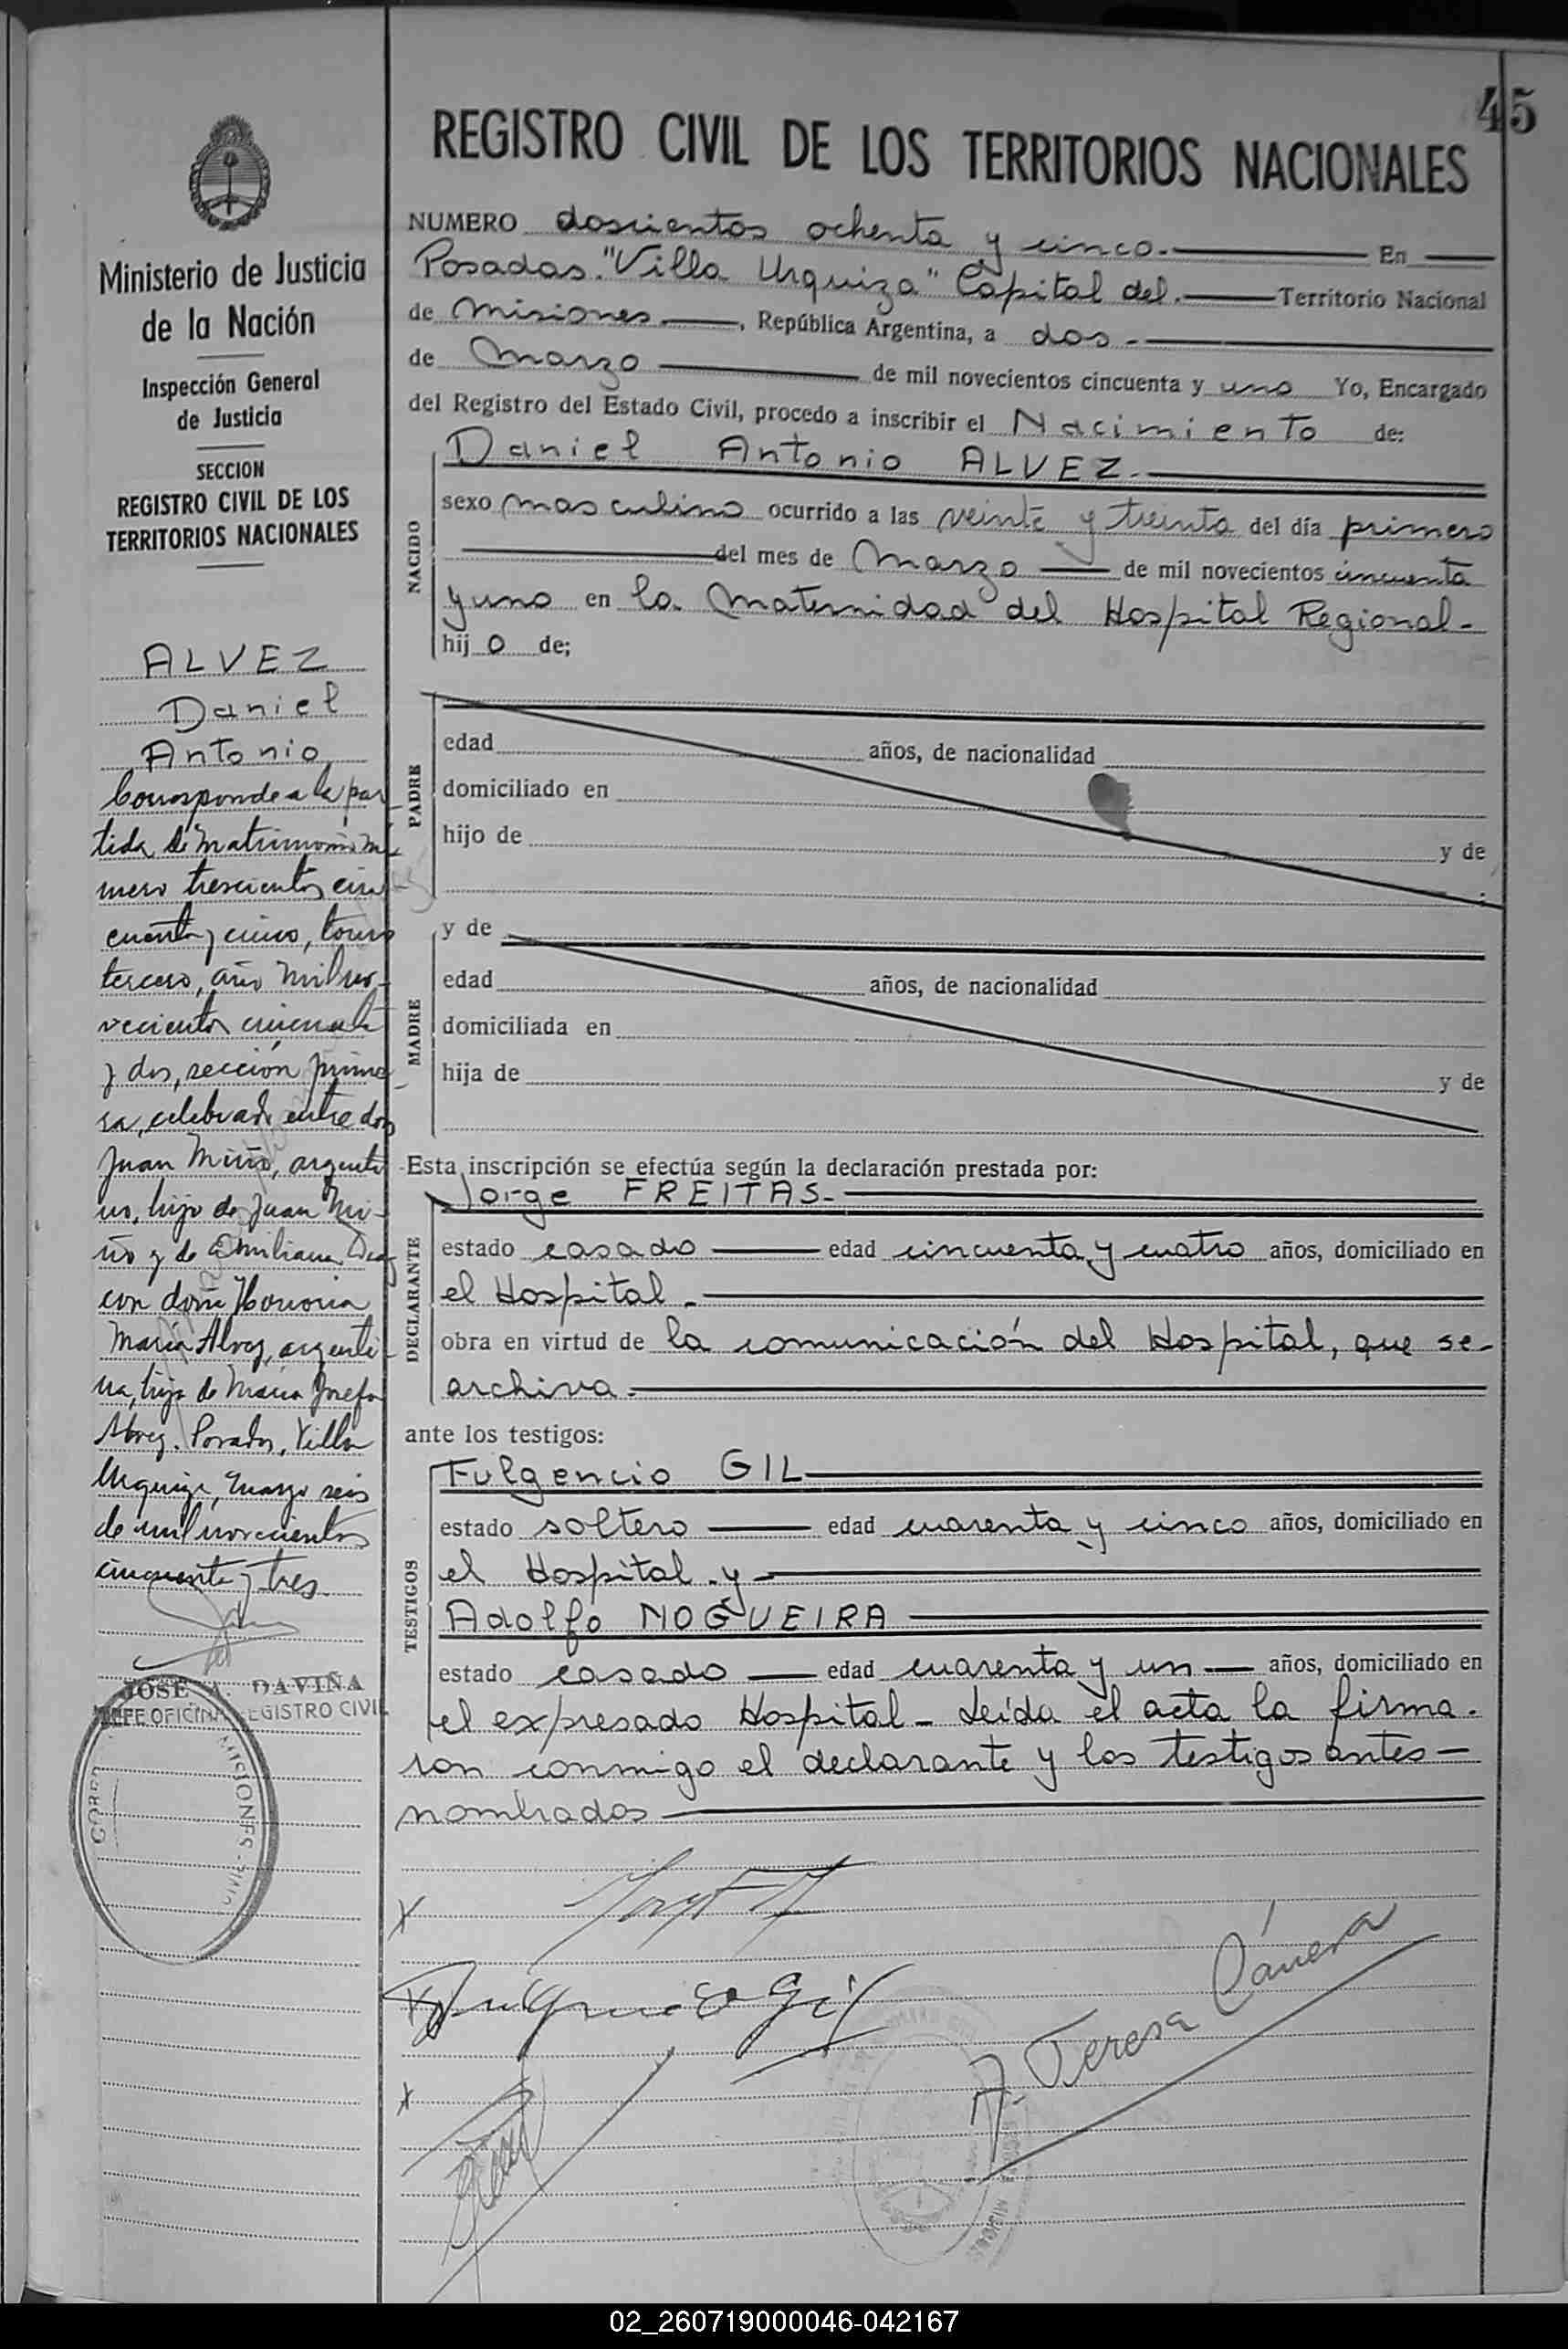 45
REGISTRO CIVIL DE LOS TERRITORIOS NACIONALES
Ministerio de Justicia
de la Nación
Inspección General
de Justicia
SECCION
REGISTRO CIVIL DE LOS
TERRITORIOS NACIONALES
ALVEZ
Daniel
Antonio
Corresponde a la par
tida de matrimonio nú
mero trescientos cin
cuenta y cinco, tomo
tercero, año mil no-
vecientos cincuenta
y dos, sección prime
ra, celebrado entre don
Juan Miño, argenti
no, hijo de Juan Mi-
ño y de Emiliana
con doña Honoria
María Alvez, argenti-
na, hija de María Josefa
Alvez. Posadas, Villa
Urquiza, marzo seis
de mil novecientos
cincuenta y tres.
JOSE A. DAVIÑA
JEFE OFICINA REGISTRO CIVIL
MISIONES
NUMERO doscientos ochenta y cinco. En
Posadas. "Villa Urquiza" Capital del. Territorio Nacional
de Misiones, República Argentina, a dos -
de Marzo de mil novecientos cincuenta y uno Yo, Encargado
del Registro del Estado Civil, procedo a inscribir el Nacimiento de:
NACIDO
Daniel Antonio ALVEZ.
sexo masculino ocurrido a las veinte y treinta del día primero
del mes de Marzo de mil novecientos cincuenta
y uno en la Maternidad del Hospital Regional-
hij o de;
PADRE
edad años, de nacionalidad
domiciliado en
hijo de y de
MADRE
y de
edad años, de nacionalidad
domiciliada en
hija de y de
Esta inscripción se efectúa según la declaración prestada por:
DECLARANTE
Jorge FREITAS-
estado casado edad cincuenta y cuatro años, domiciliado en
el Hospital.
obra en virtud de la comunicación del Hospital, que se-
archiva.
ante los testigos:
TESTIGOS
Fulgencio GIL
estado soltero edad cuarenta y cinco años, domiciliado en
el Hospital y
Adolfo NOGUEIRA
estado casado edad cuarenta y un años, domiciliado en
el expresado Hospital- Leída el acta la firma-
ron conmigo el declarante y los testigos antes-
nombrados
x
x Fulgencio Gil
x
A. Teresa Cánera
02_260719000046-042167